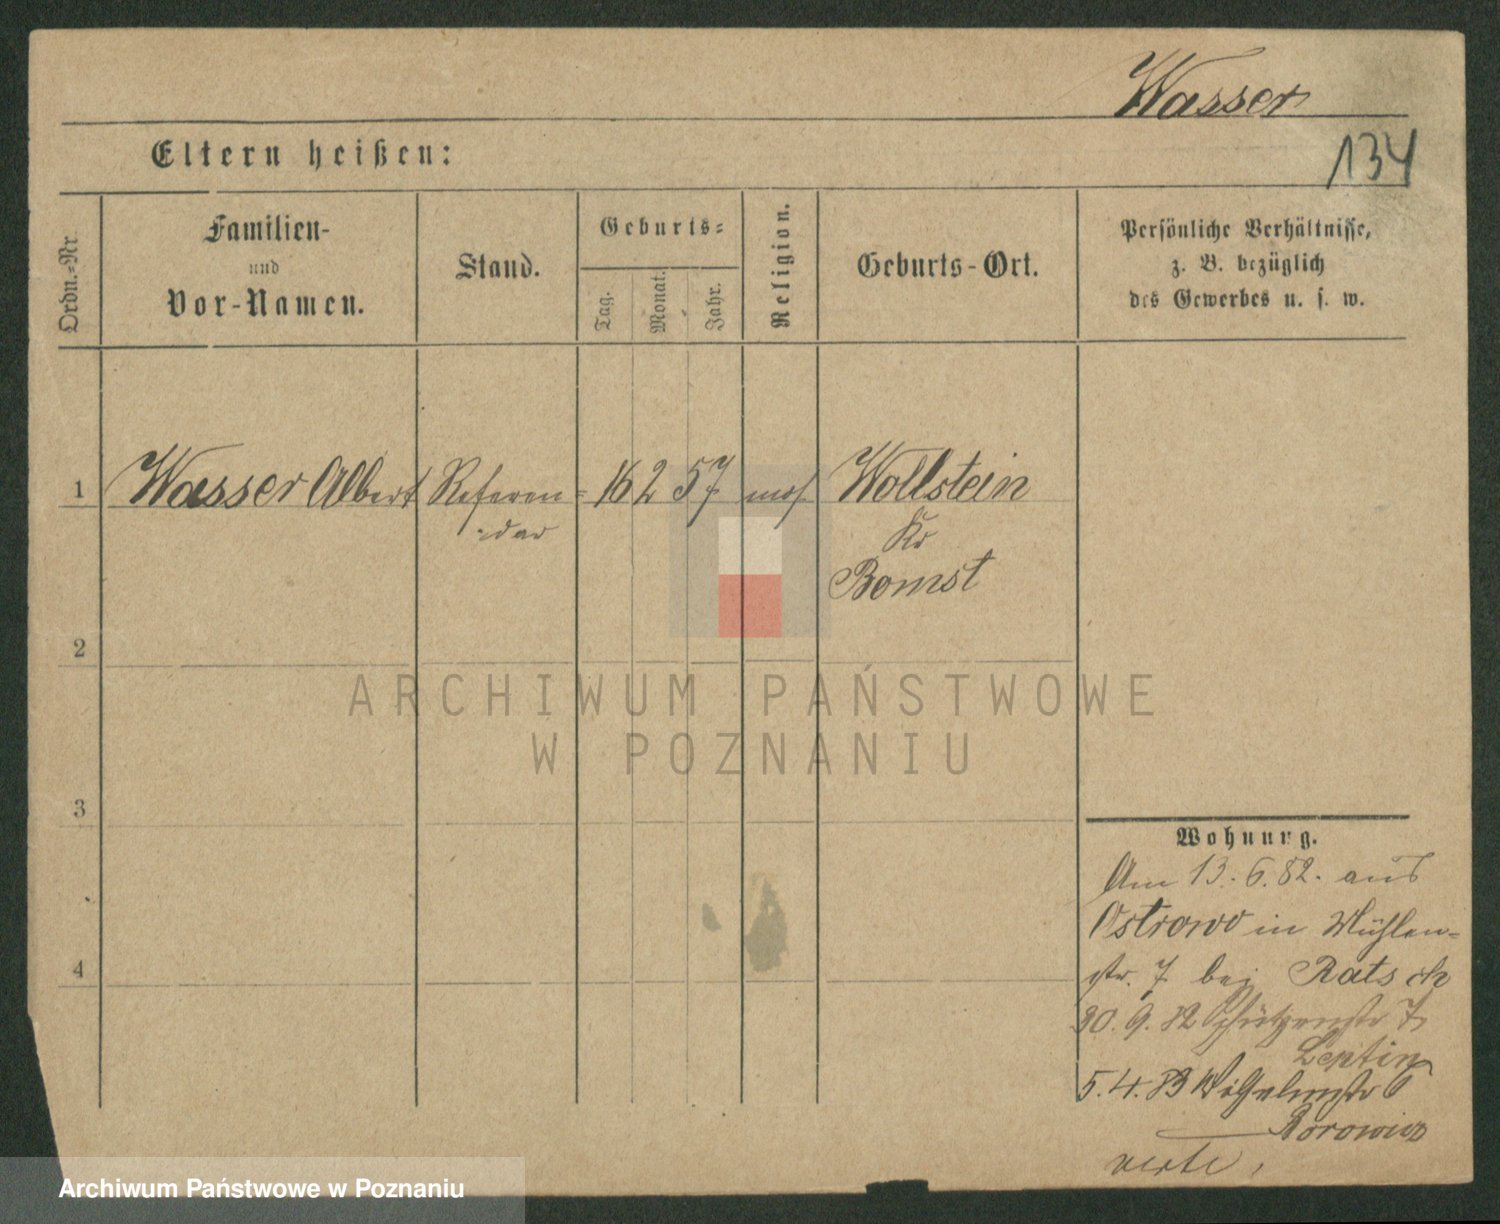 Wasser
134
Eltern heißen:
Ordn.-Nr.
Familien-
und
Vor-Namen.
Stand.
Geburts-
Tag.
Monat.
Jahr.
Religion.
Geburts-Ort.
Persönliche Verhältnisse,
z. B. bezüglich
des Gewerbes u. s. w.
1 Wasser Albert Referen- 16 2 57 mos Wollstein
dar
Kr
Bomst
2
ARCHIWUM PAŃSTWOWE
W POZNANIU
3
4
Wohnung.
Am 13.6.82. aus
Ostrowo in Mühlen-
str. 7 bei Ratsch
30.9.82 Schützenstr 7
5.4.83 Wilhelmstr 6
Borowicz
verte
Archiwum Państwowe w Poznaniu